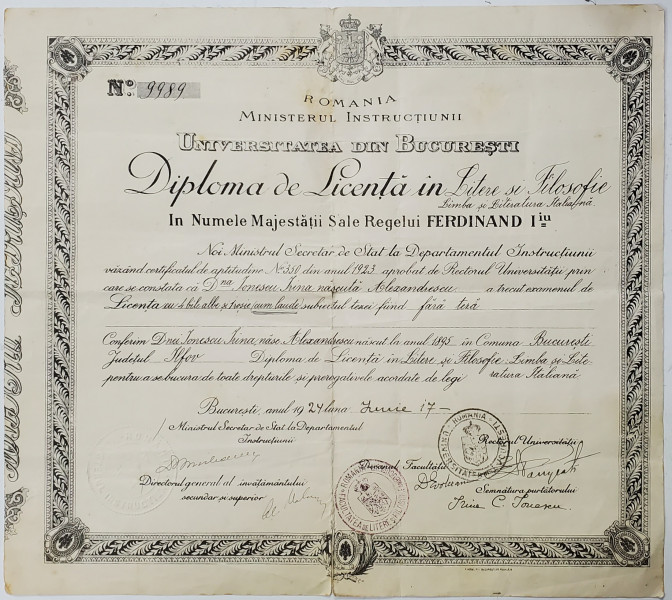 No: 9989
ROMANIA
MINISTERUL INSTRUCȚIUNII
UNIVERSITATEA DIN BUCUREȘTI
Diploma de Licență in Litere si Filosofie
Limba și Literatura Italiană
In Numele Majestății Sale Regelui FERDINAND I iu
Noi Ministrul Secretar de Stat la Departamentul Instrucțiunii
văzând certificatul de aptitudine No 350 din anul 1923 aprobat de Rectorul Universității prin
care se constata că Dna Ionescu Irina născută Alexandrescu a trecut examenul de
Licența cu 4 bile albe și trei (cum laude) subiectul tezei fiind fără teză
Conferim Dnei Ionescu Irina născ. Alexandrescu născut la anul 1895 in Comuna București
Județul Ilfov Diploma de Licență in Litere și Filosofie Limba și Lite-
ratura Italiană
pentru a se bucura de toate drepturile si prerogativele acordate de legi
București, anul 1924 luna Iunie 17
Ministrul Secretar de Stat la Departamentul
Instrucțiunii
Rectorul Universității
Decanul Facultății
Directorul general al invătământului
secundar si superior
Semnătura purtătorului
Irina C. Ionescu